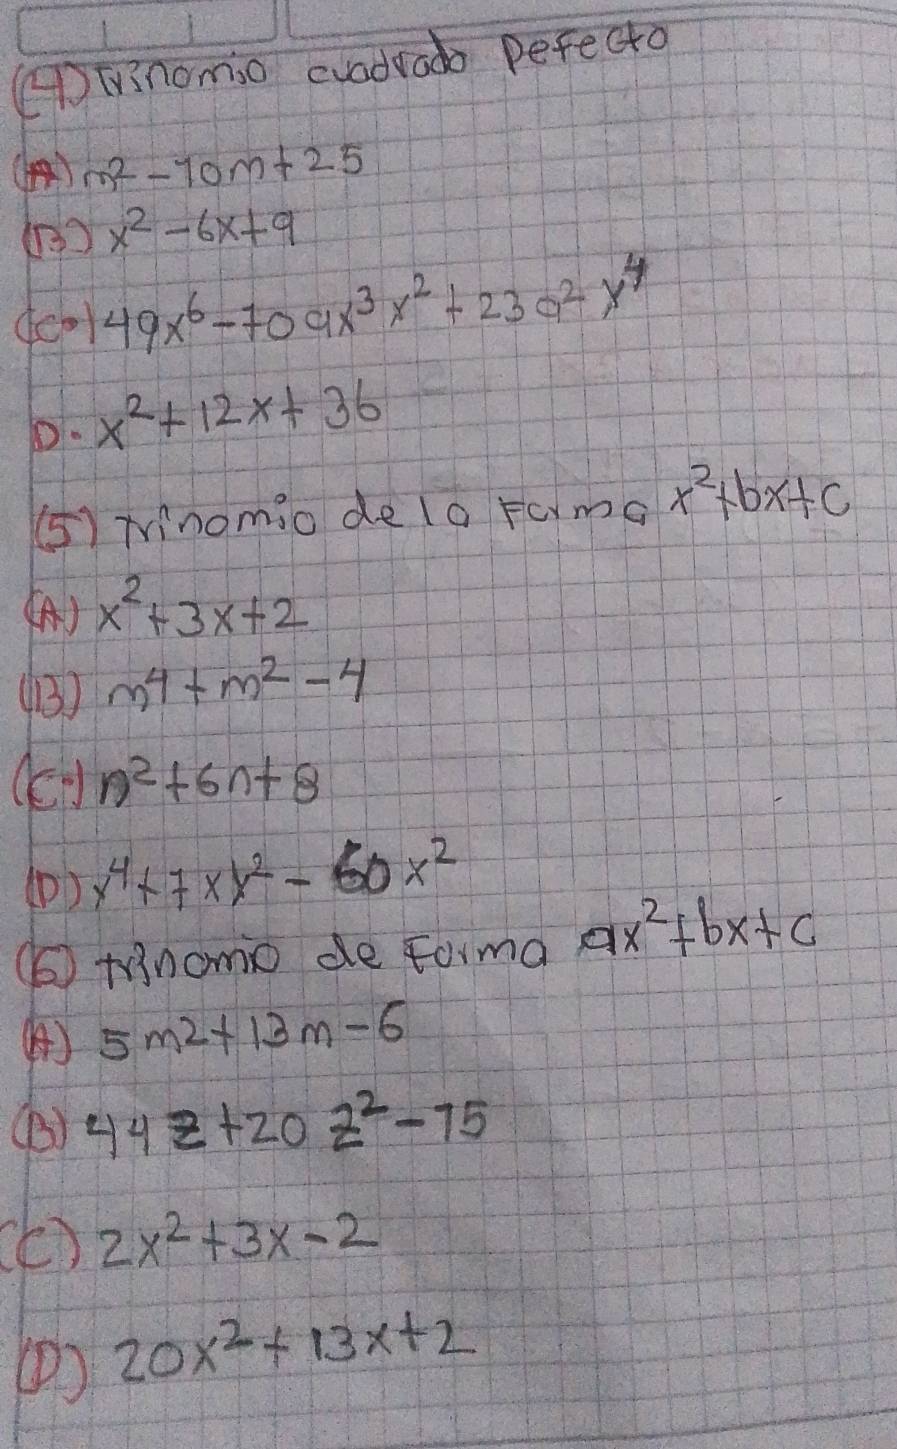 (4) trinomio cuadrado Pefecto
(A) m² - 10m + 25
(B) x² - 6x + 9
(C) 49x⁶ - 70ax³x² + 23a²y⁴
D. x² + 12x + 36
(5) trinomio de la Forma x² + bx + c
(A) x² + 3x + 2
(B) m⁴ + m² - 4
(C) n² + 6n + 8
(D) x⁴ + 7xy² - 60x²
(6) trinomio de Forma ax² + bx + c
(A) 5m2 + 13m - 6
(B) 44z + 20z² - 15
(C) 2x² + 3x - 2
(D) 20x² + 13x + 2